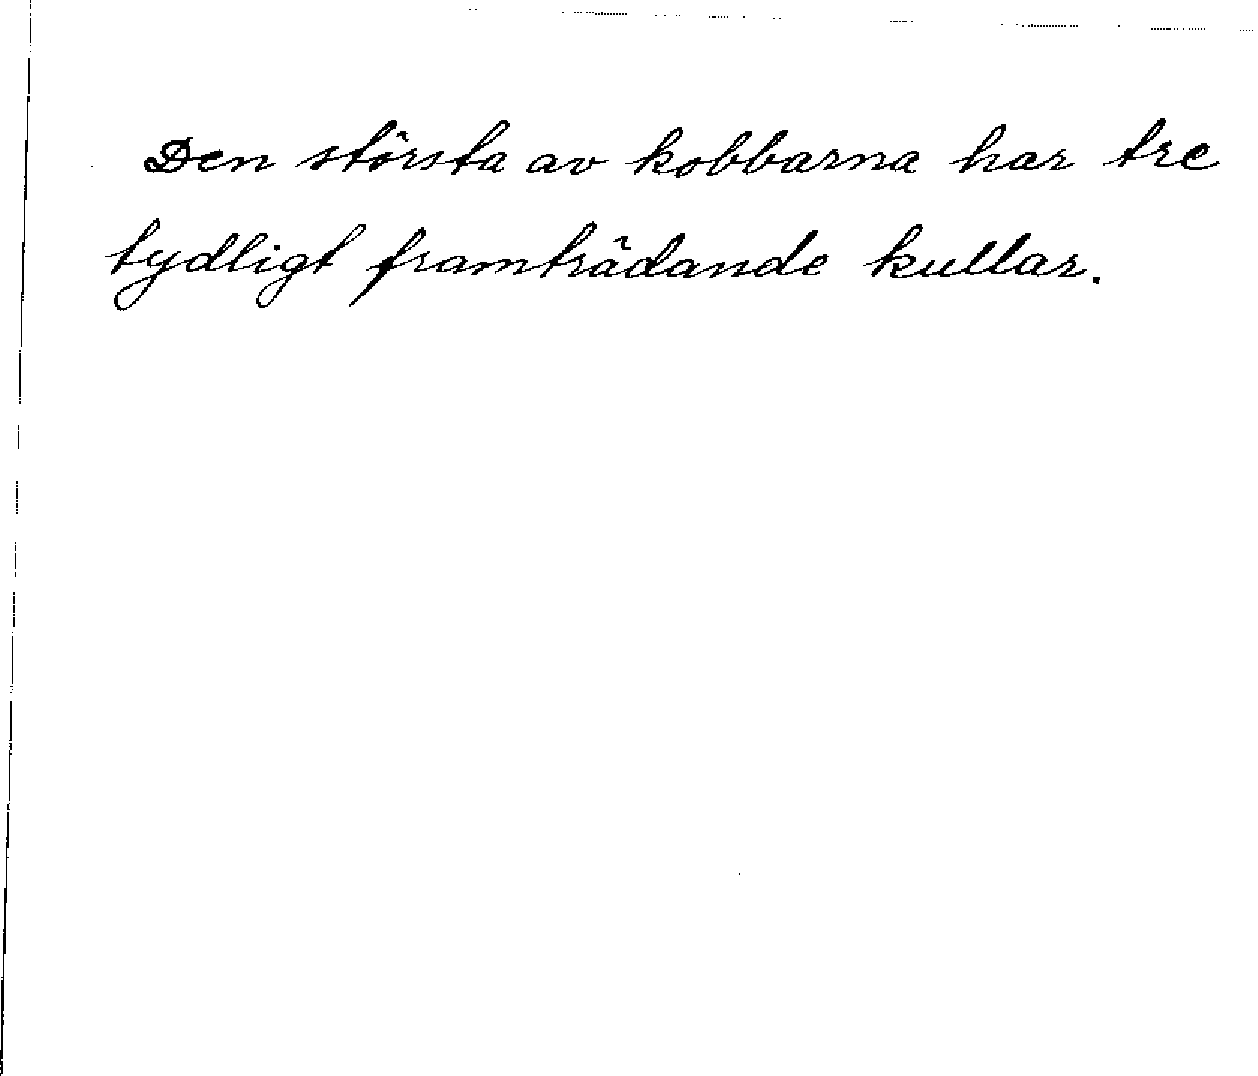 Den största av kobbarna har tre
tydligt framträdande kullar.